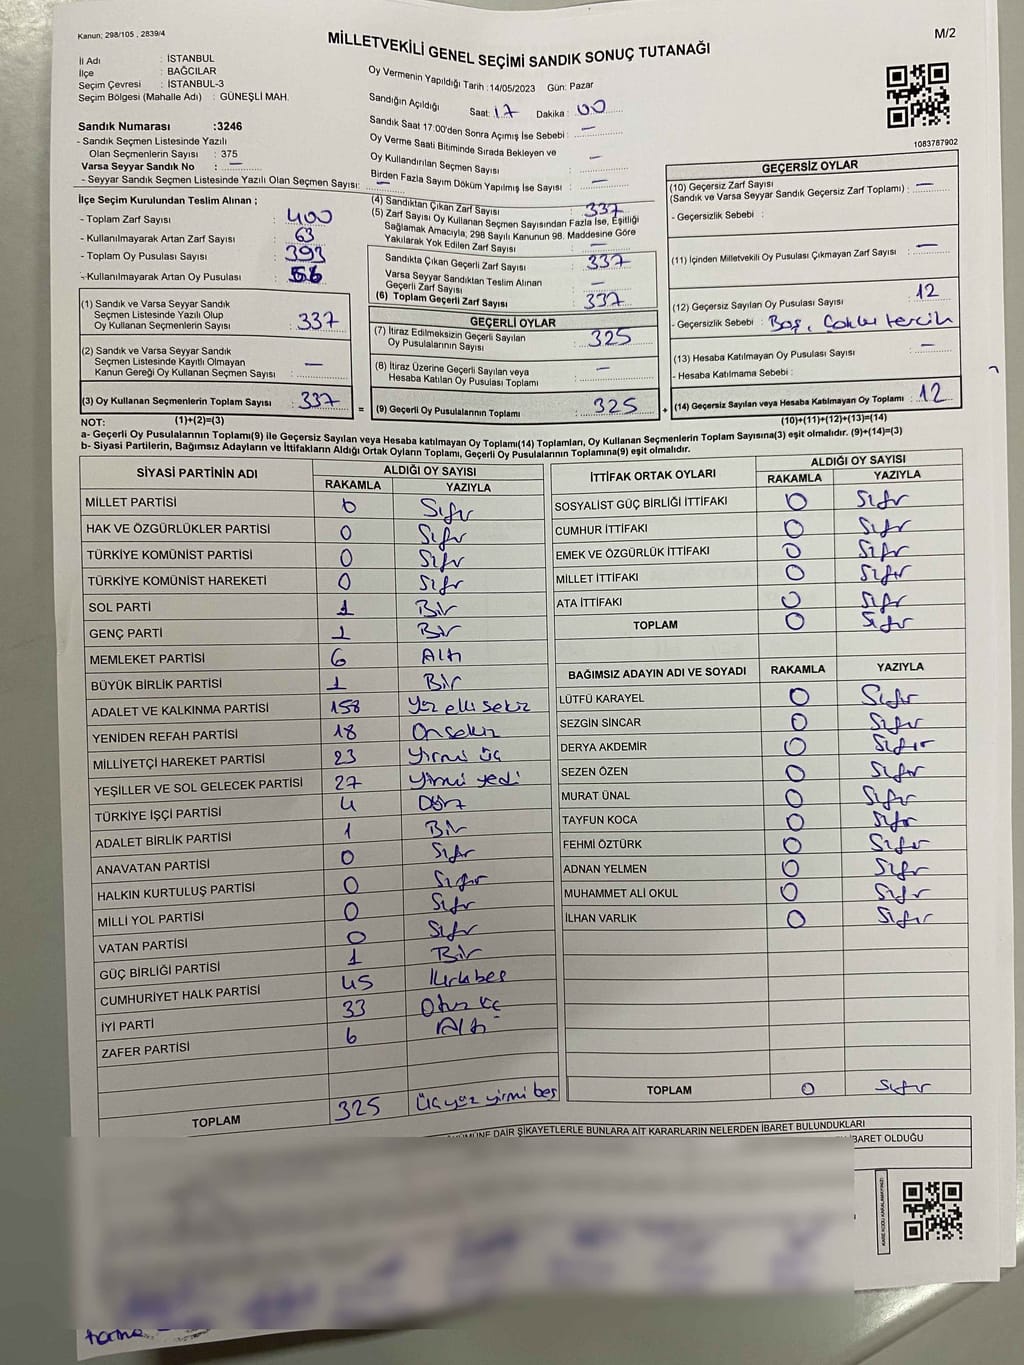 Kanun: 298/105 , 2839/4
MİLLETVEKİLİ GENEL SEÇİMİ SANDIK SONUÇ TUTANAĞI
M/2
İl Adı : İSTANBUL
İlçe : BAĞCILAR
Seçim Çevresi : İSTANBUL-3
Seçim Bölgesi (Mahalle Adı) : GÜNEŞLİ MAH.
Sandık Numarası :3246
- Sandık Seçmen Listesinde Yazılı
Olan Seçmenlerin Sayısı : 375
Varsa Seyyar Sandık No : —
- Seyyar Sandık Seçmen Listesinde Yazılı Olan Seçmen Sayısı: —
Oy Vermenin Yapıldığı Tarih :14/05/2023 Gün: Pazar
Sandığın Açıldığı Saat: 17 Dakika : 00
Sandık Saat 17:00'den Sonra Açımış İse Sebebi : —
Oy Verme Saati Bitiminde Sırada Bekleyen ve
Oy Kullandırılan Seçmen Sayısı : —
Birden Fazla Sayım Döküm Yapılmış İse Sayısı : —
1083787902
İlçe Seçim Kurulundan Teslim Alınan ;
- Toplam Zarf Sayısı : 400
- Kullanılmayarak Artan Zarf Sayısı : 63
- Toplam Oy Pusulası Sayısı : 393
- Kullanılmayarak Artan Oy Pusulası : 56
(1) Sandık ve Varsa Seyyar Sandık
Seçmen Listesinde Yazılı Olup
Oy Kullanan Seçmenlerin Sayısı : 337
(2) Sandık ve Varsa Seyyar Sandık
Seçmen Listesinde Kayıtlı Olmayan
Kanun Gereği Oy Kullanan Seçmen Sayısı : —
(3) Oy Kullanan Seçmenlerin Toplam Sayısı : 337
(1)+(2)=(3)
(4) Sandıktan Çıkan Zarf Sayısı : 337
(5) Zarf Sayısı Oy Kullanan Seçmen Sayısından Fazla İse, Eşitliği
Sağlamak Amacıyla, 298 Sayılı Kanunun 98. Maddesine Göre
Yakılarak Yok Edilen Zarf Sayısı : —
Sandıkta Çıkan Geçerli Zarf Sayısı : 337
Varsa Seyyar Sandıktan Teslim Alınan
Geçerli Zarf Sayısı : —
(6) Toplam Geçerli Zarf Sayısı : 337
GEÇERLİ OYLAR
(7) İtiraz Edilmeksizin Geçerli Sayılan
Oy Pusulalarının Sayısı : 325
(8) İtiraz Üzerine Geçerli Sayılan veya
Hesaba Katılan Oy Pusulası Toplamı : —
= (9) Geçerli Oy Pusulalarının Toplamı : 325 +
GEÇERSİZ OYLAR
(10) Geçersiz Zarf Sayısı
(Sandık ve Varsa Seyyar Sandık Geçersiz Zarf Toplamı) : —
- Geçersizlik Sebebi :
(11) İçinden Milletvekili Oy Pusulası Çıkmayan Zarf Sayısı : —
(12) Geçersiz Sayılan Oy Pusulası Sayısı : 12
- Geçersizlik Sebebi : Boş, Çoklu tercih
(13) Hesaba Katılmayan Oy Pusulası Sayısı : —
- Hesaba Katılmama Sebebi :
(14) Geçersiz Sayılan veya Hesaba Katılmayan Oy Toplamı : 12
(10)+(11)+(12)+(13)=(14)
NOT:
a- Geçerli Oy Pusulalarının Toplamı(9) ile Geçersiz Sayılan veya Hesaba katılmayan Oy Toplamı(14) Toplamları, Oy Kullanan Seçmenlerin Toplam Sayısına(3) eşit olmalıdır. (9)+(14)=(3)
b- Siyasi Partilerin, Bağımsız Adayların ve İttifakların Aldığı Ortak Oyların Toplamı, Geçerli Oy Pusulalarının Toplamına(9) eşit olmalıdır.
SİYASİ PARTİNİN ADI ALDIĞI OY SAYISI
RAKAMLA YAZIYLA
MİLLET PARTİSİ 0 Sıfır
HAK VE ÖZGÜRLÜKLER PARTİSİ 0 Sıfır
TÜRKİYE KOMÜNİST PARTİSİ 0 Sıfır
TÜRKİYE KOMÜNİST HAREKETİ 0 Sıfır
SOL PARTİ 1 Bir
GENÇ PARTİ 1 Bir
MEMLEKET PARTİSİ 6 Altı
BÜYÜK BİRLİK PARTİSİ 1 Bir
ADALET VE KALKINMA PARTİSİ 158 Yüz elli sekiz
YENİDEN REFAH PARTİSİ 18 Onsekiz
MİLLİYETÇİ HAREKET PARTİSİ 23 Yirmi üç
YEŞİLLER VE SOL GELECEK PARTİSİ 27 Yirmi yedi
TÜRKİYE İŞÇİ PARTİSİ 4 Dört
ADALET BİRLİK PARTİSİ 1 Bir
ANAVATAN PARTİSİ 0 Sıfır
HALKIN KURTULUŞ PARTİSİ 0 Sıfır
MİLLİ YOL PARTİSİ 0 Sıfır
VATAN PARTİSİ 0 Sıfır
GÜÇ BİRLİĞİ PARTİSİ 1 Bir
CUMHURİYET HALK PARTİSİ 45 Kırkbeş
İYİ PARTİ 33 Otuz üç
ZAFER PARTİSİ 6 Altı
TOPLAM 325 Üçyüz yirmi beş
İTTİFAK ORTAK OYLARI ALDIĞI OY SAYISI
RAKAMLA YAZIYLA
SOSYALİST GÜÇ BİRLİĞİ İTTİFAKI 0 Sıfır
CUMHUR İTTİFAKI 0 Sıfır
EMEK VE ÖZGÜRLÜK İTTİFAKI 0 Sıfır
MİLLET İTTİFAKI 0 Sıfır
ATA İTTİFAKI 0 Sıfır
TOPLAM 0 Sıfır
BAĞIMSIZ ADAYIN ADI VE SOYADI RAKAMLA YAZIYLA
LÜTFÜ KARAYEL 0 Sıfır
SEZGİN SİNCAR 0 Sıfır
DERYA AKDEMİR 0 Sıfır
SEZEN ÖZEN 0 Sıfır
MURAT ÜNAL 0 Sıfır
TAYFUN KOCA 0 Sıfır
FEHMİ ÖZTÜRK 0 Sıfır
ADNAN YELMEN 0 Sıfır
MUHAMMET ALİ OKUL 0 Sıfır
İLHAN VARLIK 0 Sıfır
TOPLAM 0 Sıfır
DAİR ŞİKAYETLERLE BUNLARA AİT KARARLARIN NELERDEN İBARET BULUNDUKLARI
İBARET OLDUĞU